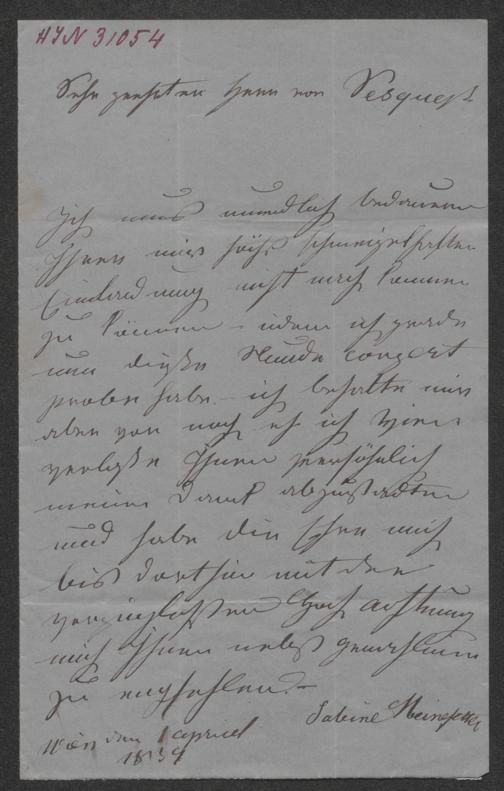 HJN 31054
Sehr geehrter Herr von Vesquest
Ich mus unendlich bedauern
Ihrer mir höchst schmeigelhaften
Einladung nicht nach kommen
zu können – indem ich gerade
um diese Stunde conzert
probe habe – ich behalte mir
aber vor noch eh ich Wien
verlasse Ihnen persöhnlich
meinen Dank abzustadten
und habe die Ehre mich
bis dorthin mit der
vorzüglichsten Hoch achtung
mich Ihnen nebst gemahlin
zu empfehlen –
Sabine Heinefetter
Wien den 1 apriel
1834